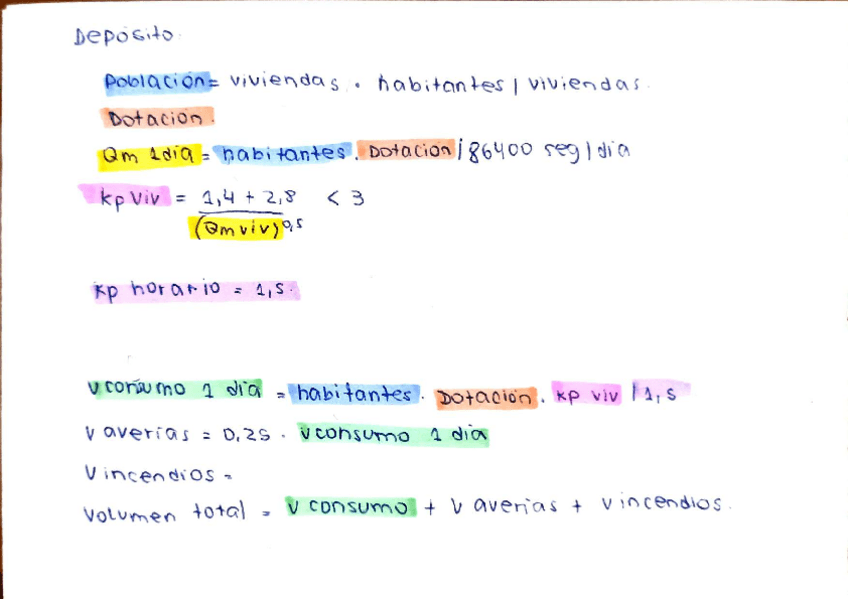 Depósito.
Población = viviendas · habitantes / viviendas.
Dotación.
Qm 1día = habitantes. Dotación / 86400 seg / día
kp viv = 1,4 + 2,8 < 3
(Qm viv)^0,5
kp horario = 1,5.
V consumo 1 día = habitantes. Dotación. kp viv / 1,5
V averías = 0,25 · Vconsumo 1 día
V incendios =
Volumen total = V consumo + V averías + V incendios.